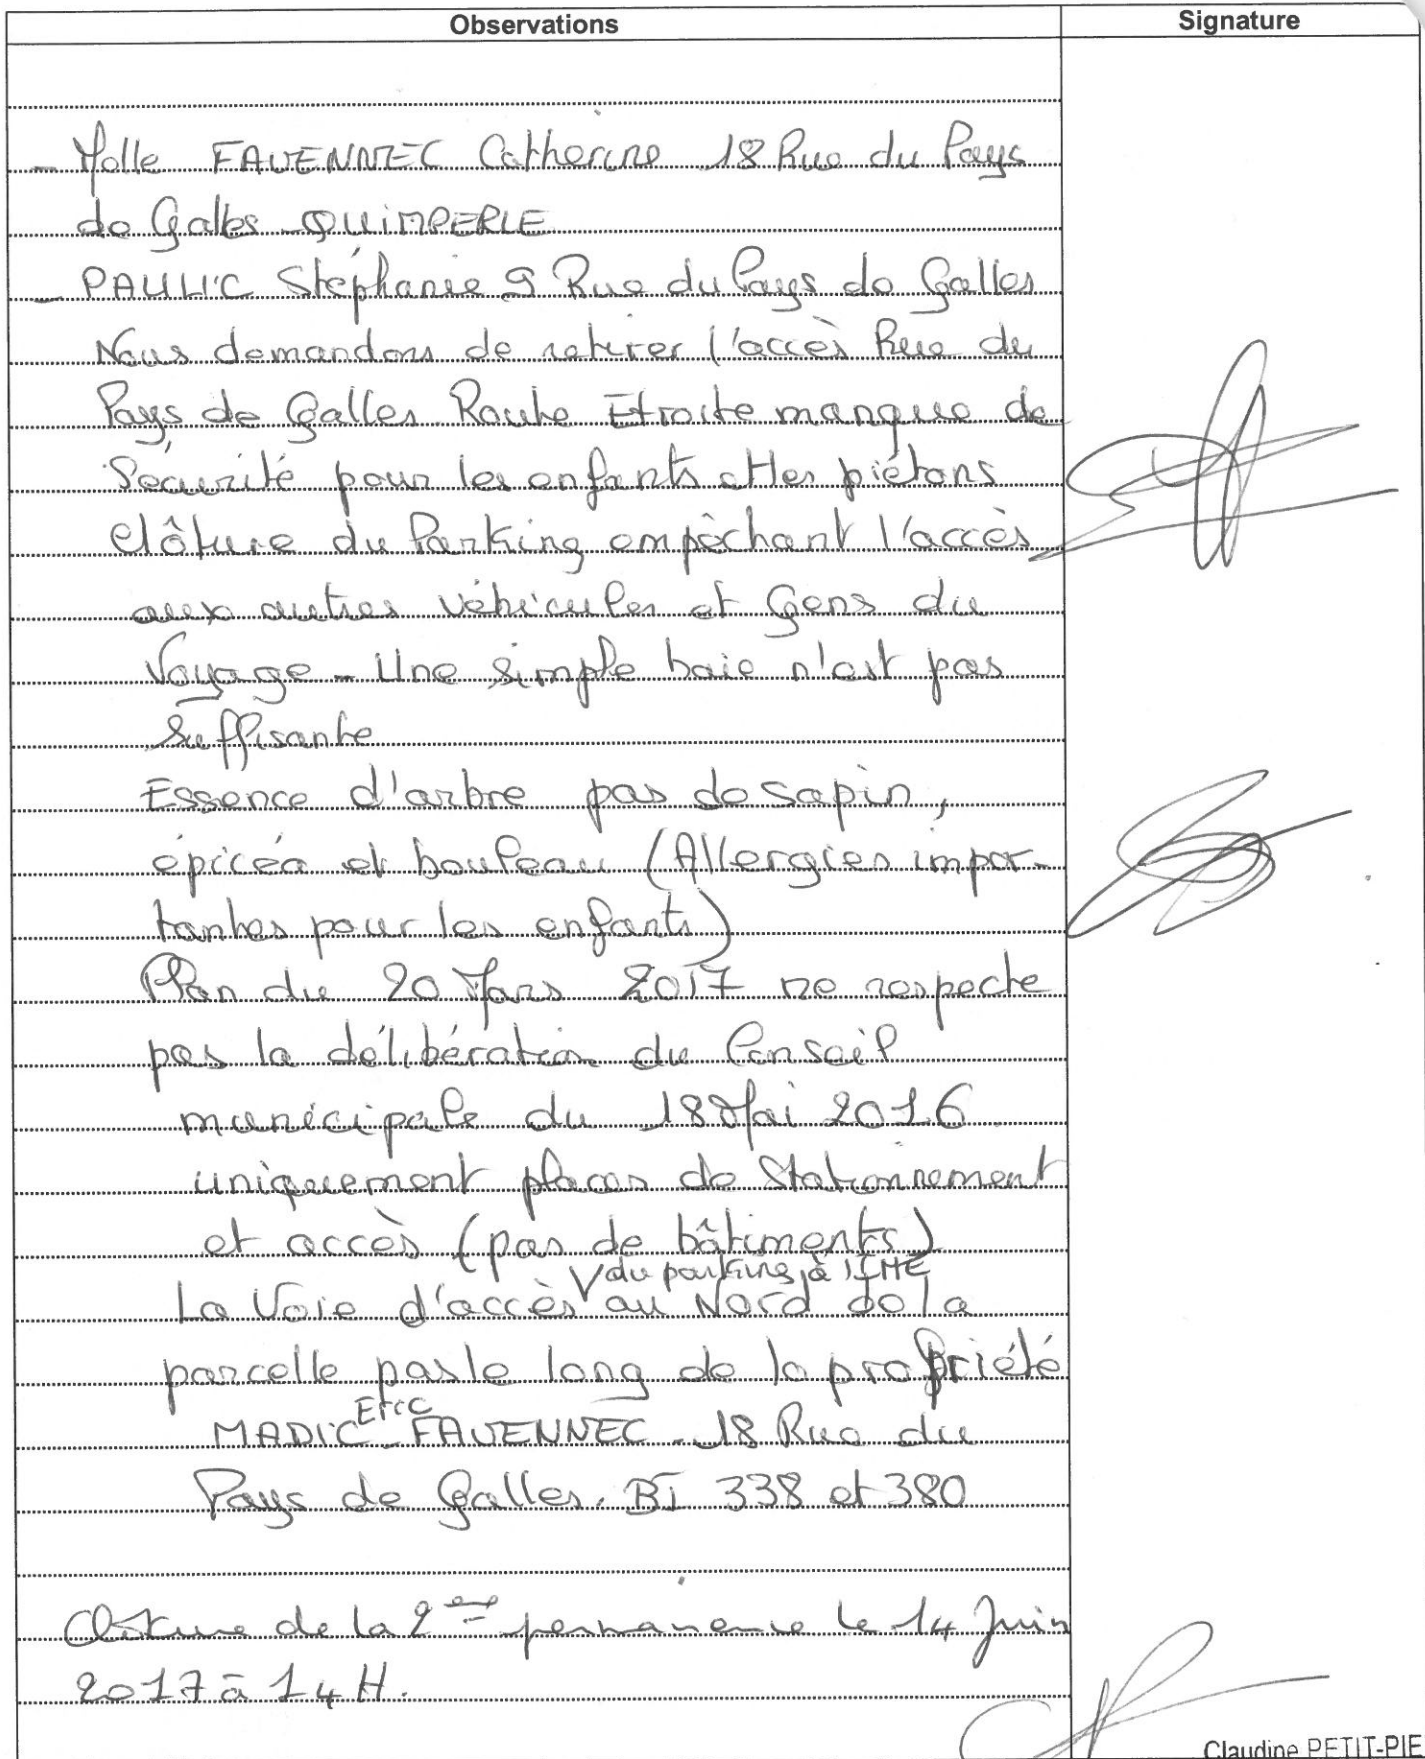 Observations
Signature
- Melle FAVENNEC Catherine 18 Rue du Pays
de Galles QUIMPERLE
- PAULIC Stéphanie 9 Rue du Pays de Galles
Nous demandons de retirer l'accès Rue du
Pays de Galles Route Etroite manque de
Sécurité pour les enfants et les piétons
Clôture du Parking empêchant l'accès
aux autres véhicules et Gens du
Voyage - Une simple haie n'est pas
Suffisante
Essence d'arbre pas de sapin,
épicéa et bouleau (Allergies impor-
tantes pour les enfants)
Plan du 20 Mars 2017 ne respecte
pas la délibération du Conseil
municipale du 18 Mai 2016
uniquement places de Stationnement
et accès (pas de bâtiments)
V du parking à l'IME
La Voie d'accès au Nord de la
parcelle pas le long de la propriété
Eric
MADIC - FAVENNEC - 18 Rue du
Pays de Galles. BI 338 et 380
Clôture de la 2ème permanence le 14 Juin
2017 à 14 H.
Claudine PETIT-PIE